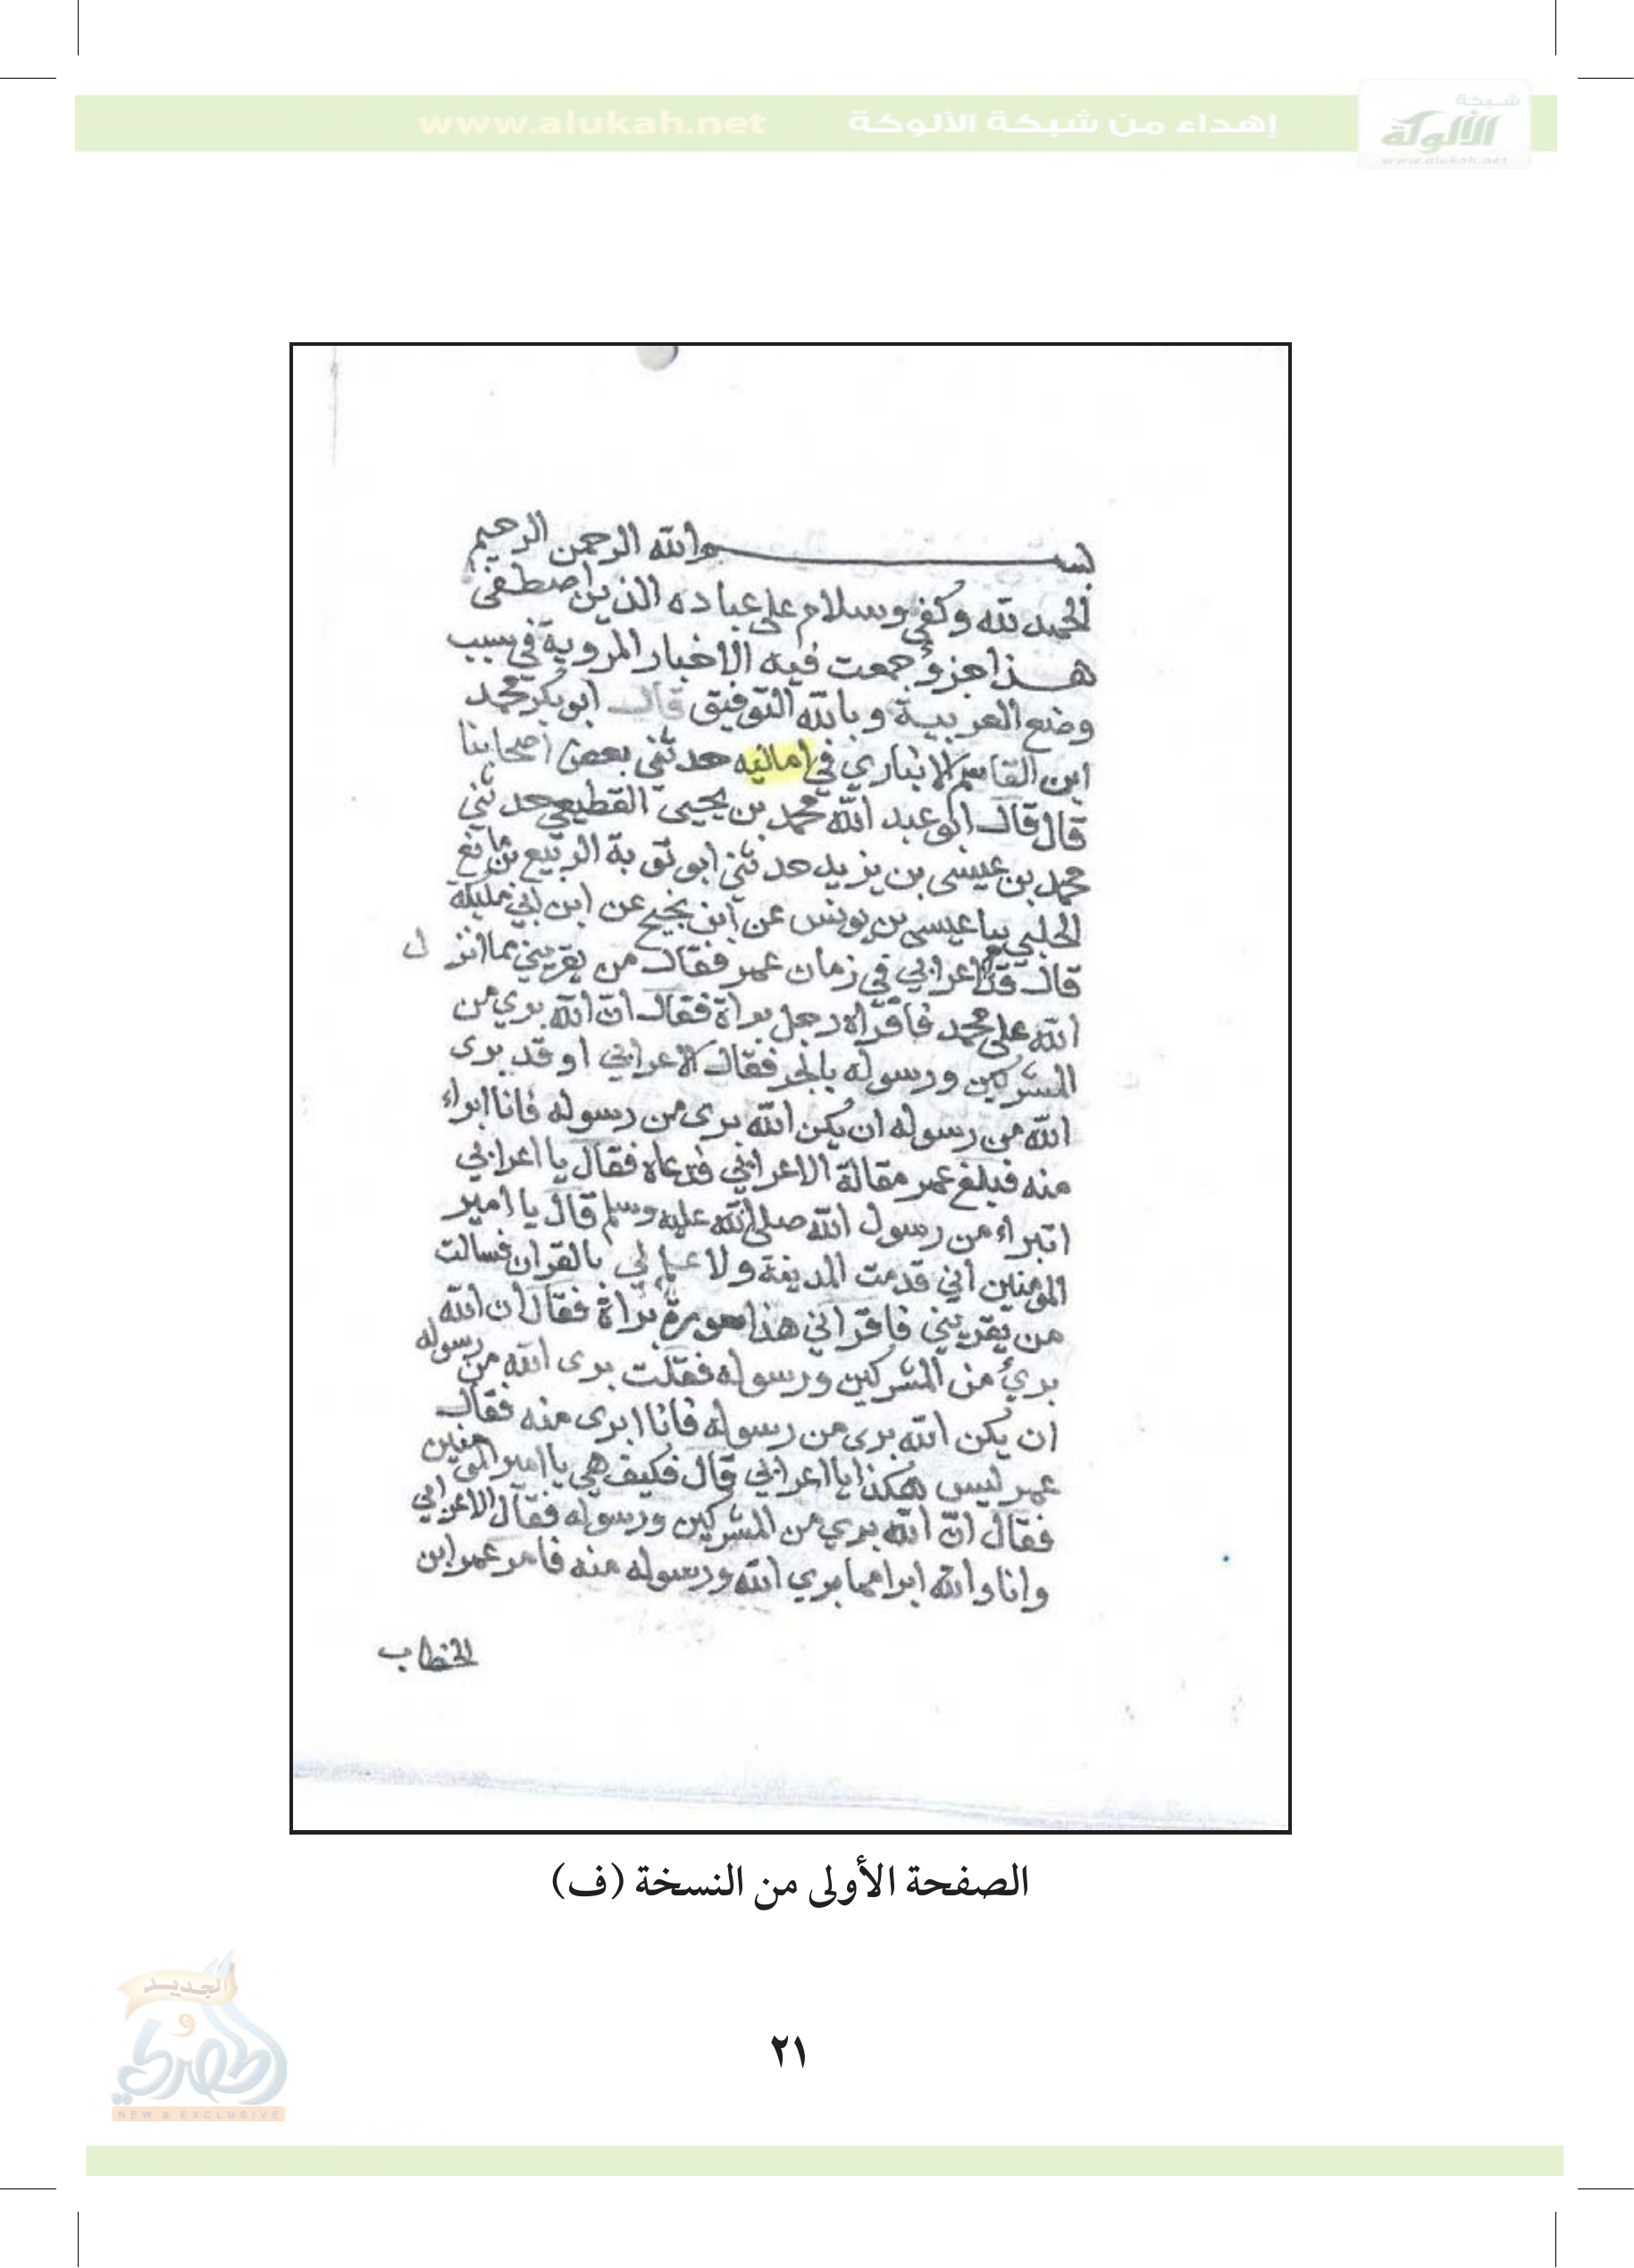 شبكة
الألوكة
www.alukah.net
إهداء من شبكة الألوكة www.alukah.net
بسم الله الرحمن الرحيم
الحمد لله وكفى وسلام على عباده الذين اصطفى
هذا جزؤ جمعت فيه الاخبار المروية في سبب
وضع العربية وبالله التوفيق قال ابو بكر محمد
ابن القاسم الانباري في اماليه حدثني بعض اصحابنا
قال قال ابو عبد الله محمد بن يحيى القطيعي حدثني
محمد بن عيسى بن يزيد حدثني ابو توبة الربيع بن نافع
الحلبي ثنا عيسى بن يونس عن ابن نجيح عن ابن ابي مليكة
قال قدم اعرابي في زمان عمر فقال من يقريني مما انزل
الله على محمد فاقراه رجل براة فقال ان الله بري من
المشركين ورسوله بالجر فقال الاعرابي او قد برى
الله من رسوله ان يكن الله برى من رسوله فانا ابراء
منه فبلغ عمر مقالة الاعرابي فدعاه فقال يا اعرابي
اتبراء من رسول الله صلى الله عليه وسلم قال يا امير
المومنين اني قدمت المدينة ولا علم لي بالقران فسالت
من يقريني فاقراني هذا سورة براة فقال ان الله
بريء من المشركين ورسوله فقلت برى الله من رسوله
ان يكن الله برى من رسوله فانا ابرى منه فقال
عمر ليس هكذا يا اعرابي قال فكيف هي يا امير المومنين
فقال ان الله بري من المشركين ورسوله فقال الاعرابي
وانا والله ابرا مما بري الله ورسوله منه فامر عمر ابن
الخطاب
الصفحة الأولى من النسخة (ف)
الجديد
و
الحصري
NEW & EXCLUSIVE
٢١